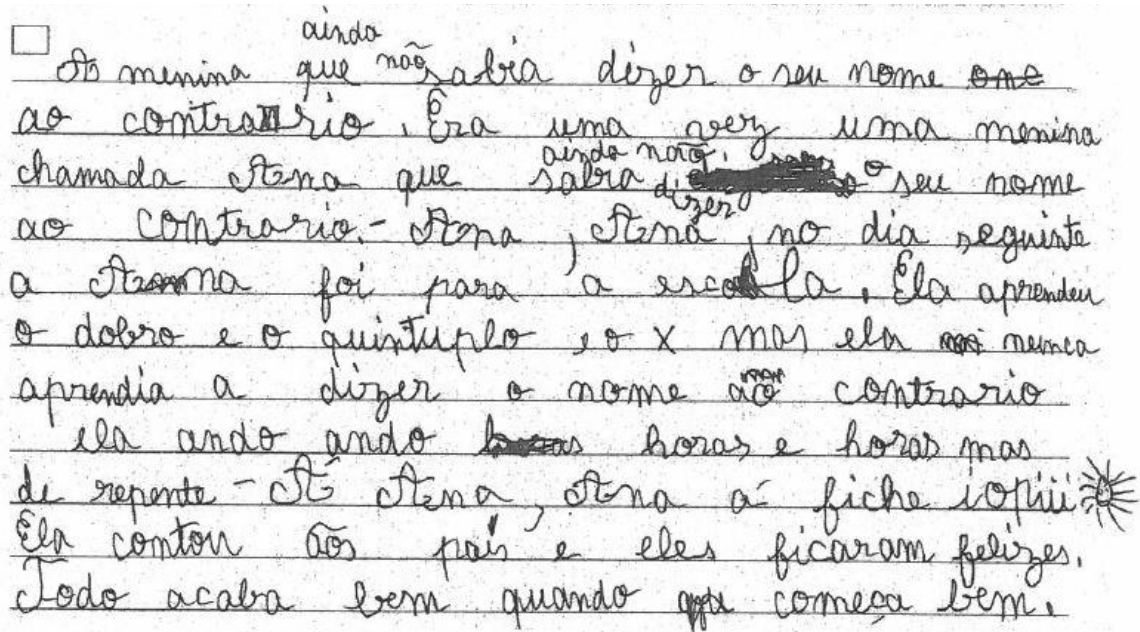 A menina que ainda não sabia dizer o seu nome
ao contrario. Era uma vez uma menina
chamada Ana que ainda não sabia dizer o seu nome
ao contrario. - Ana, Ana, no dia seguinte
a Ana foi para a escola. Ela aprendeu
o dobro e o quintuplo e o x mas ela nunca
aprendia a dizer o nome ao contrario
ela ando ando horas e horas mas
de repente - A Ana, Ana á fiche iopiii
Ela contou aos pais e eles ficaram felizes.
Todo acaba bem quando começa bem.